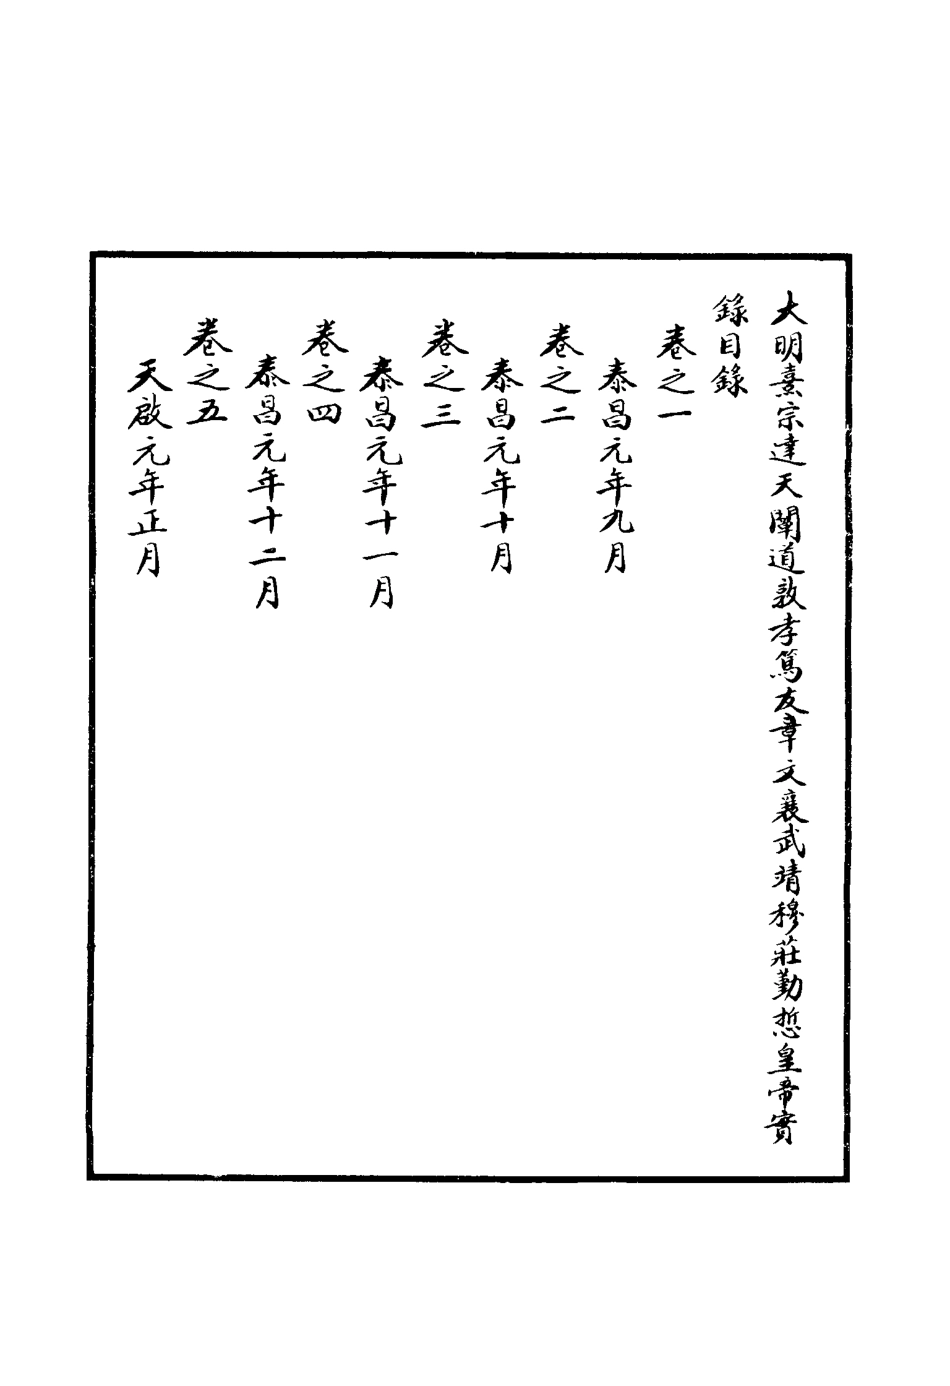 大明熹宗達天闡道敦孝篤友章文襄武靖穆莊勤悊皇帝實
錄目錄
卷之一
泰昌元年九月
卷之二
泰昌元年十月
卷之三
泰昌元年十一月
卷之四
泰昌元年十二月
卷之五
天啟元年正月